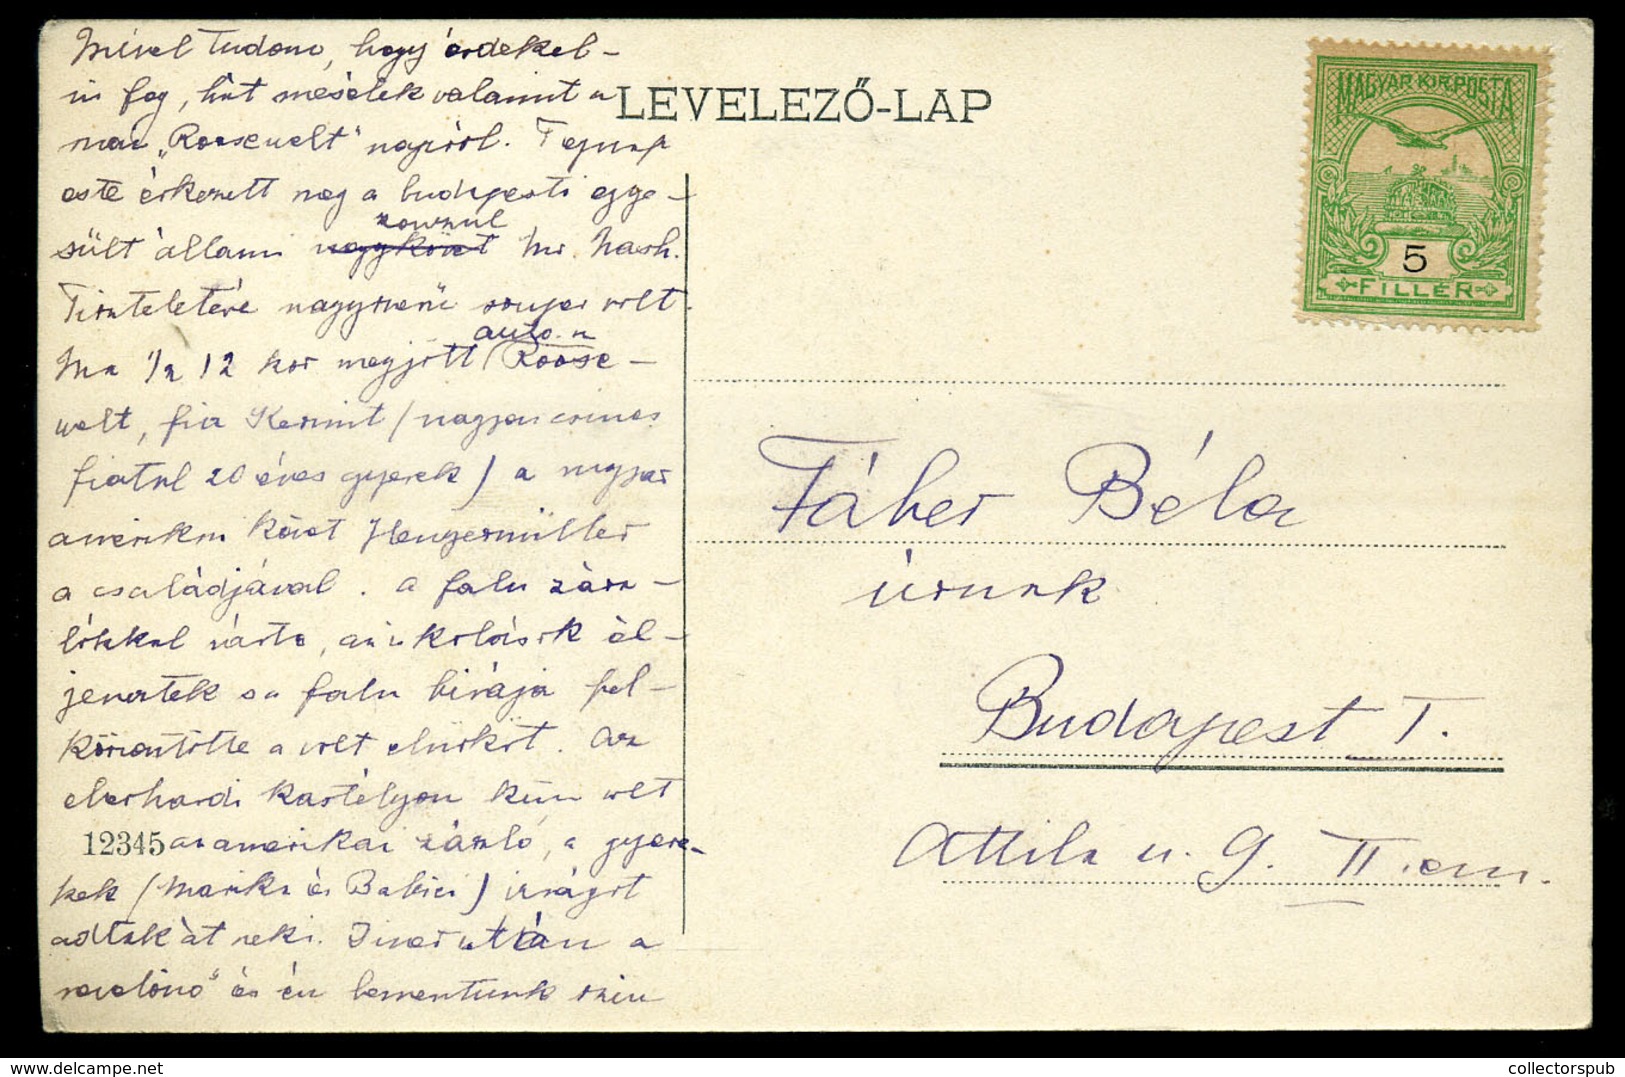 Mivel tudom, hogy érdekel-
ni fog, hát mesélek valamit a
mai „Roosewelt" napról. Tegnap
este érkezett meg a budapesti egye-
sült állami konzul Mr. Nash.
Tiszteletére nagyszerű souper volt.
Ma 1/2 12 kor megjött auto.n Roose-
welt, fia Kermit (nagyon csinos
fiatal 20 éves gyerek) a magyar
amerikai követ Hengermüller
a családjával. a falu zász-
lókkal várta, az iskolások él-
jeneztek s a falu birája fel-
köszöntötte a volt elnököt. az
eberhardi kastélyon künn volt
az amerikai zászló, a gyere-
kek (Marika és Babici) virágot
adtak át neki. Dinner után a
nevelőnő" és én bementünk szin
12345
LEVELEZŐ-LAP
MAGYAR KIR. POSTA
5
FILLÉR
Fáber Béla
úrnak
Budapest I.
Attila u. 9. II. em.
collectorspub
www.delcampe.net